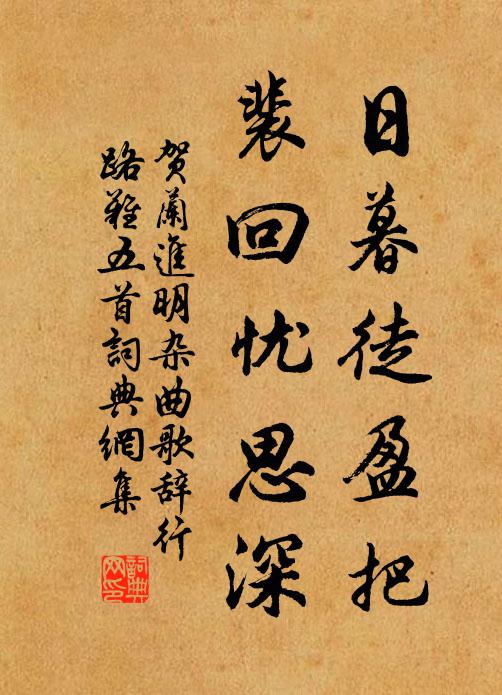 日暮徒盈把
裴回忧思深
贺蘭進明杂曲歌辞行
路難五首詞典網集
詞典
网印